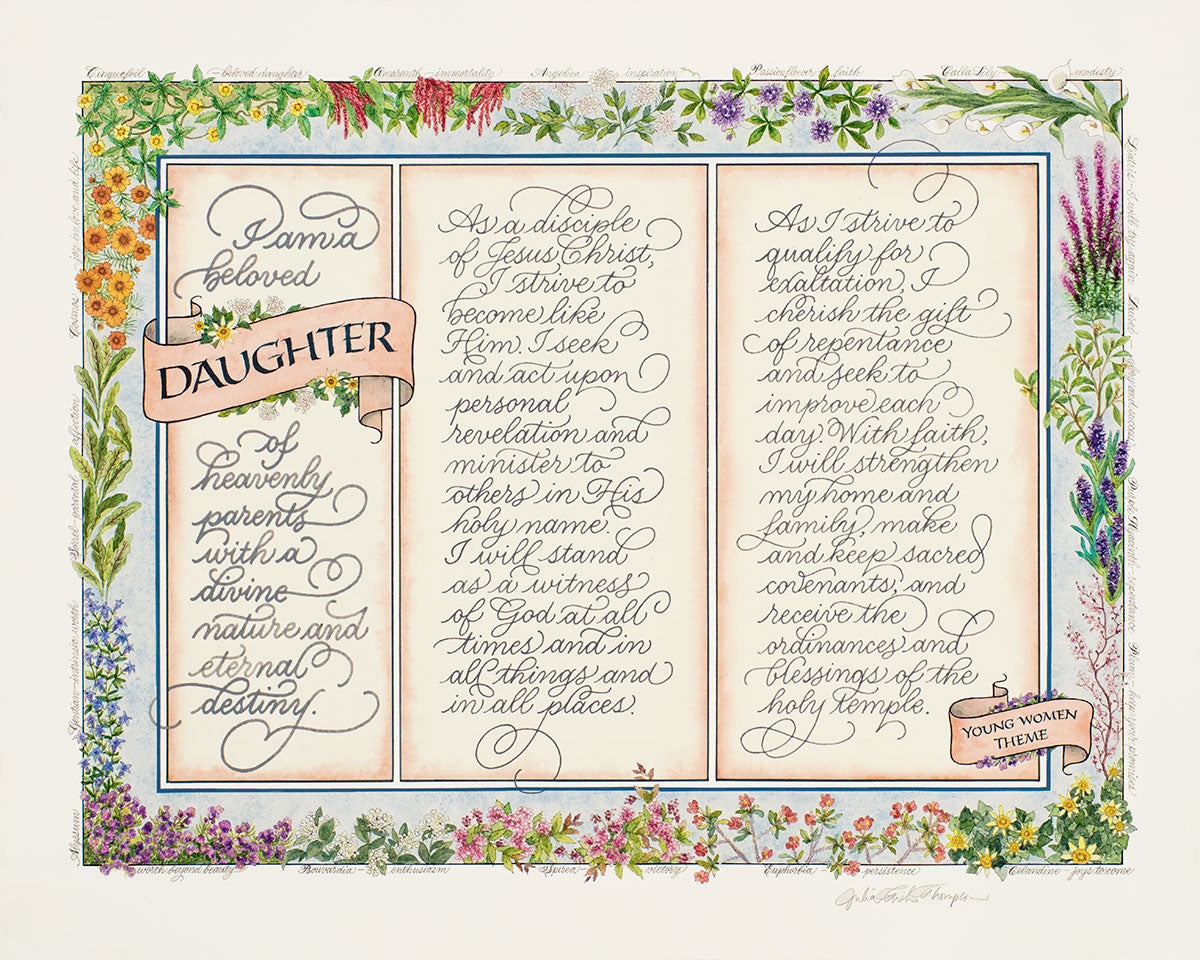 Cinquefoil – beloved daughter
Amaranth – immortality
Angelica – inspiration
Passionflower – faith
Calla Lily – modesty
I am a
beloved
DAUGHTER
of
heavenly
parents
with a
divine
nature and
eternal
destiny.
As a disciple
of Jesus Christ,
I strive to
become like
Him. I seek
and act upon
personal
revelation and
minister to
others in His
holy name.
I will stand
as a witness
of God at all
times and in
all things and
in all places.
As I strive to
qualify for
exaltation, I
cherish the gift
of repentance
and seek to
improve each
day. With faith,
I will strengthen
my home and
family, make
and keep sacred
covenants, and
receive the
ordinances and
blessings of the
holy temple.
YOUNG WOMEN
THEME
Cosmos – joy in love and life
Sorrel – parental affection
Gentian – intrinsic worth
Alyssum
worth beyond beauty
Bouvardia – enthusiasm
Spirea – victory
Euphorbia – persistence
Celandine – joys to come